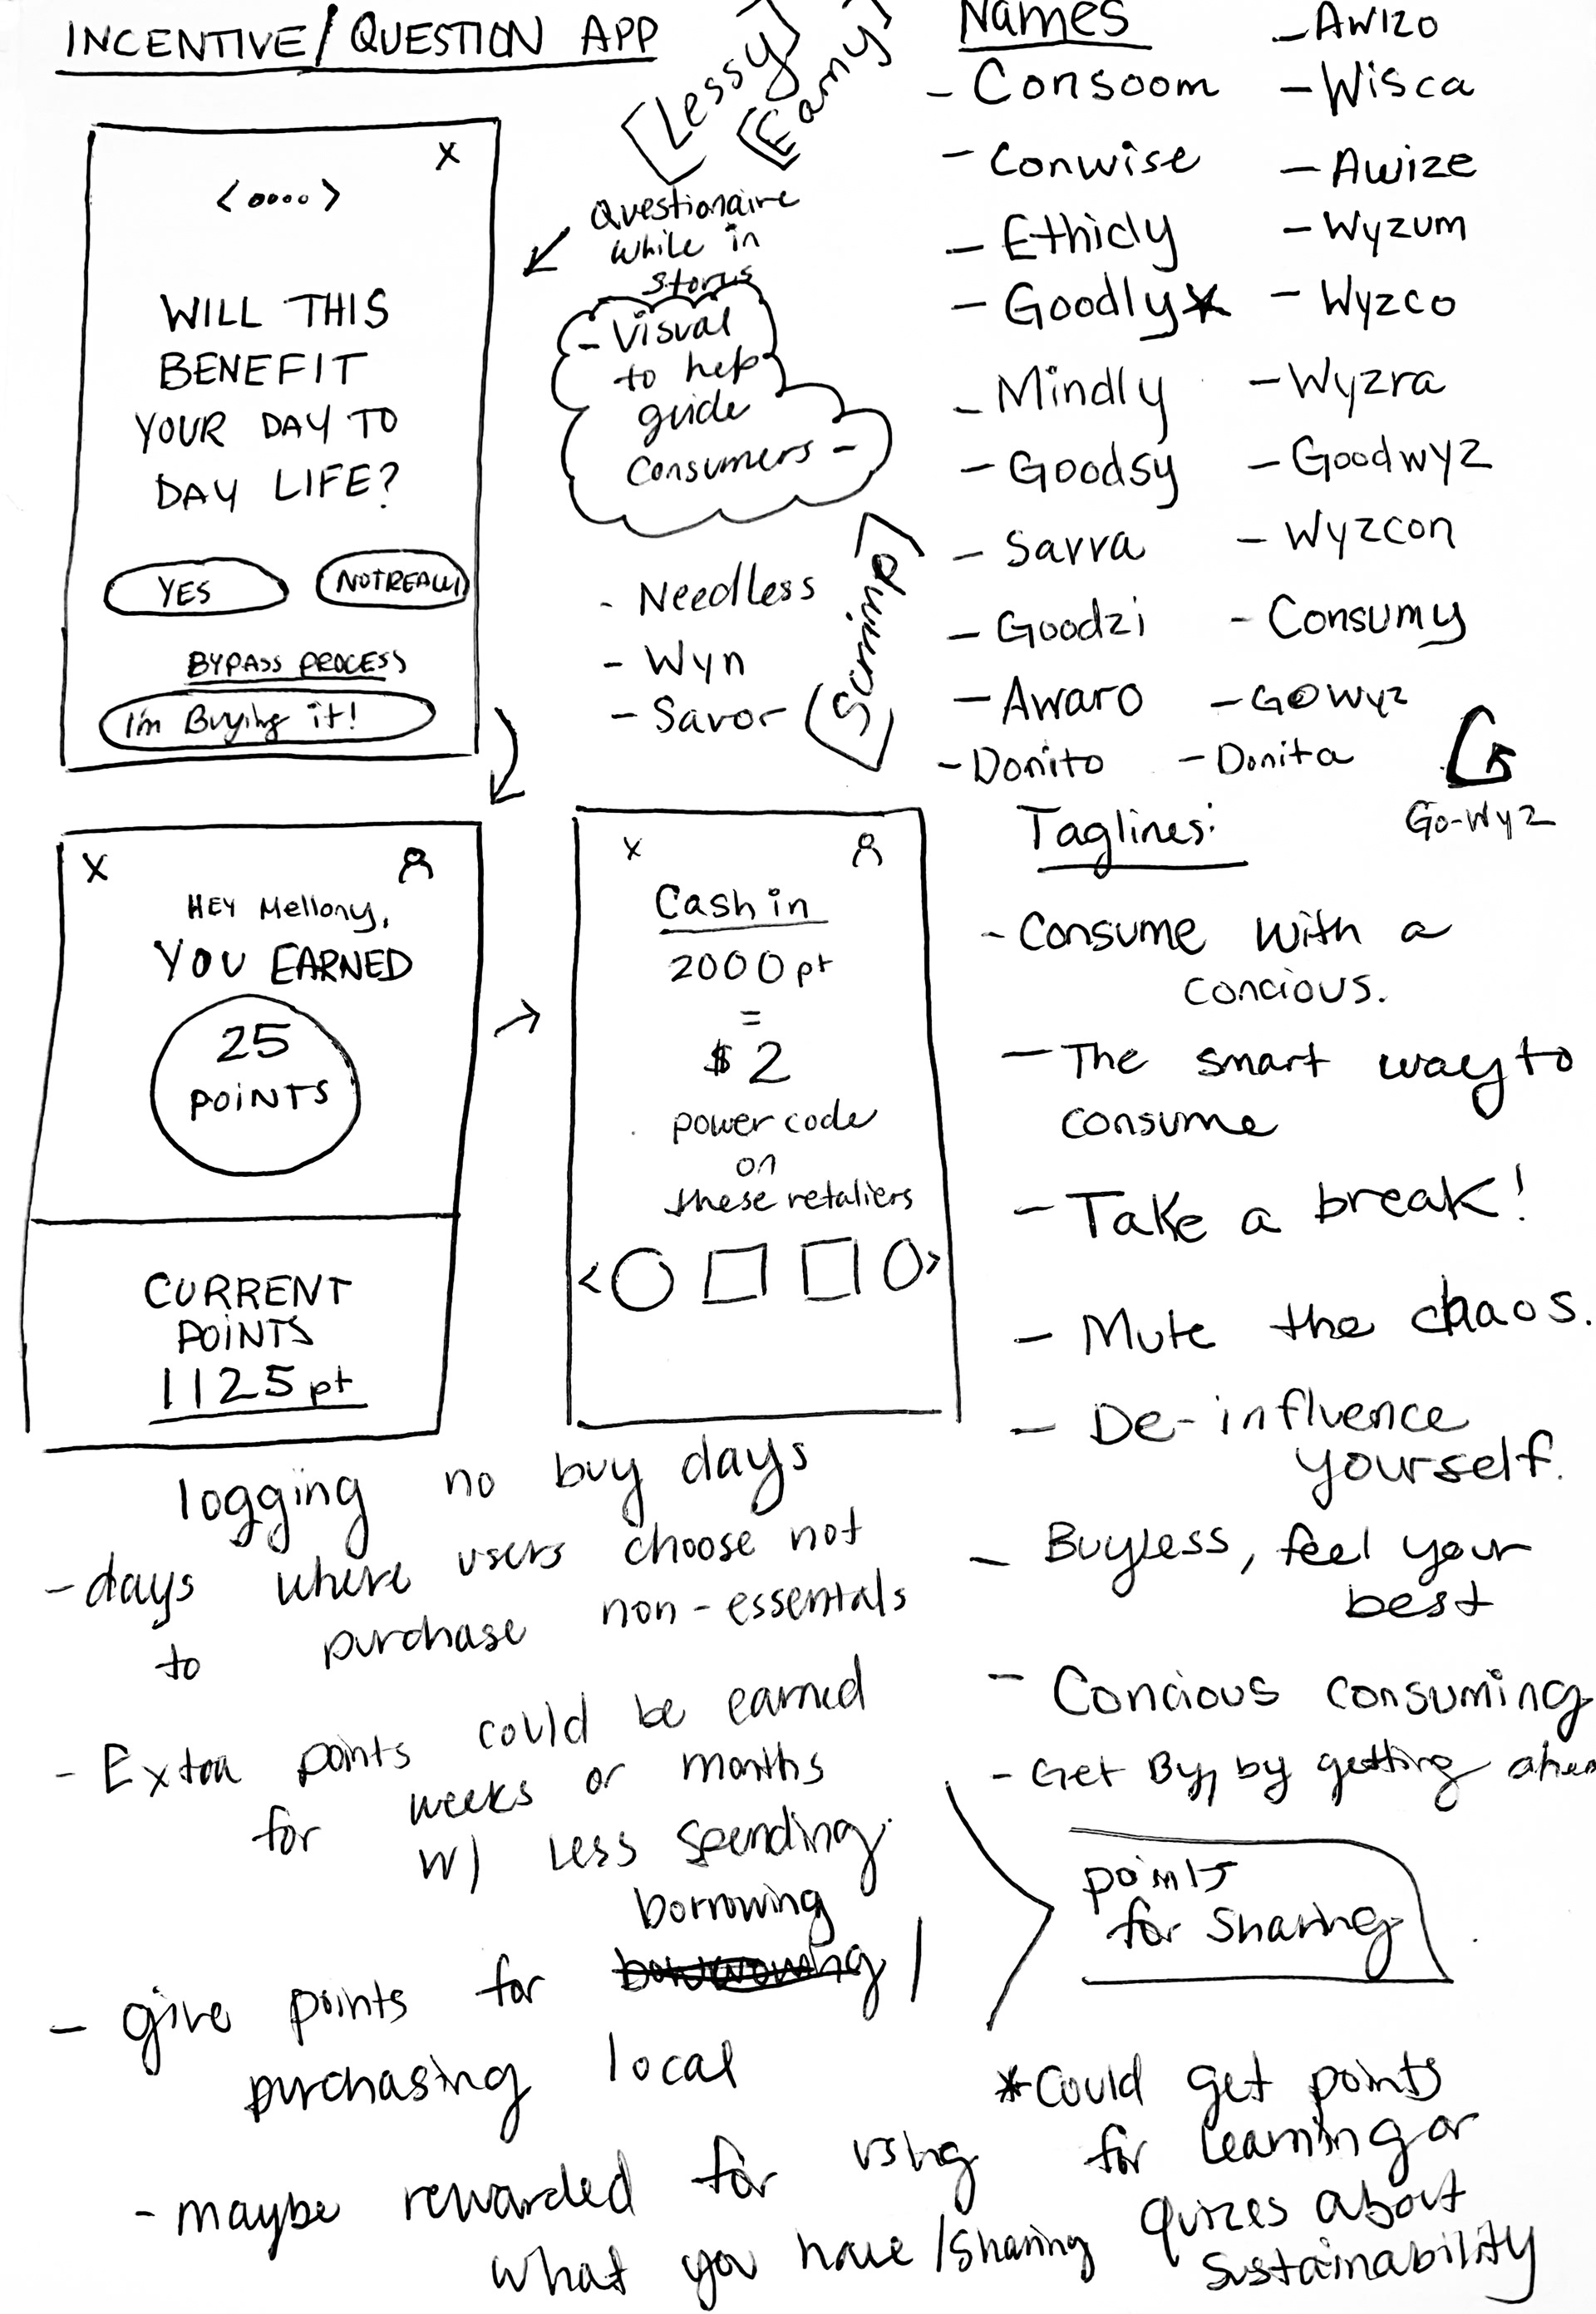 INCENTIVE/QUESTION APP
[Lessy]
[Earny]
X
<oooo>
WILL THIS
BENEFIT
YOUR DAY TO
DAY LIFE?
YES
NOT REALLY
BYPASS PROCESS
I'm Buying it!
Questionaire
while in
stores
- Visual
to help
guide
Consumers -
- Needless
- Wyn
- Savor
[Scrimp]
Names
- Consoom
- Conwise
- Ethicly
- Goodly*
- Mindly
- Goodsy
- Savra
- Goodzi
- Awaro
- Donito
- Awizo
- Wisca
- Awize
- Wyzum
- Wyzco
- Wyzra
- Goodwyz
- Wyzcon
- Consumy
- GOWyz
- Donita
Go-Wyz
X
HEY Mellony,
YOU EARNED
25
POINTS
CURRENT
POINTS
1125pt
X
Cash in
2000pt
=
$2
power code
on
these retaliers
< >
Taglines:
- Consume with a
concious.
- The smart way to
consume
- Take a break!
- Mute the chaos.
- De-influence
yourself.
- Buyless, feel your
best
- Concious consuming
- Get By, by getting
logging no buy days
- days where users choose not
to purchase non-essentals
- Extra points could be earned
for weeks or months
w/ less spending
borrowing
- give points for /
purchasing local
- maybe rewarded for using
what you have/sharing
points
for sharing
*Could get points
for learning or
quizes about
sustainability